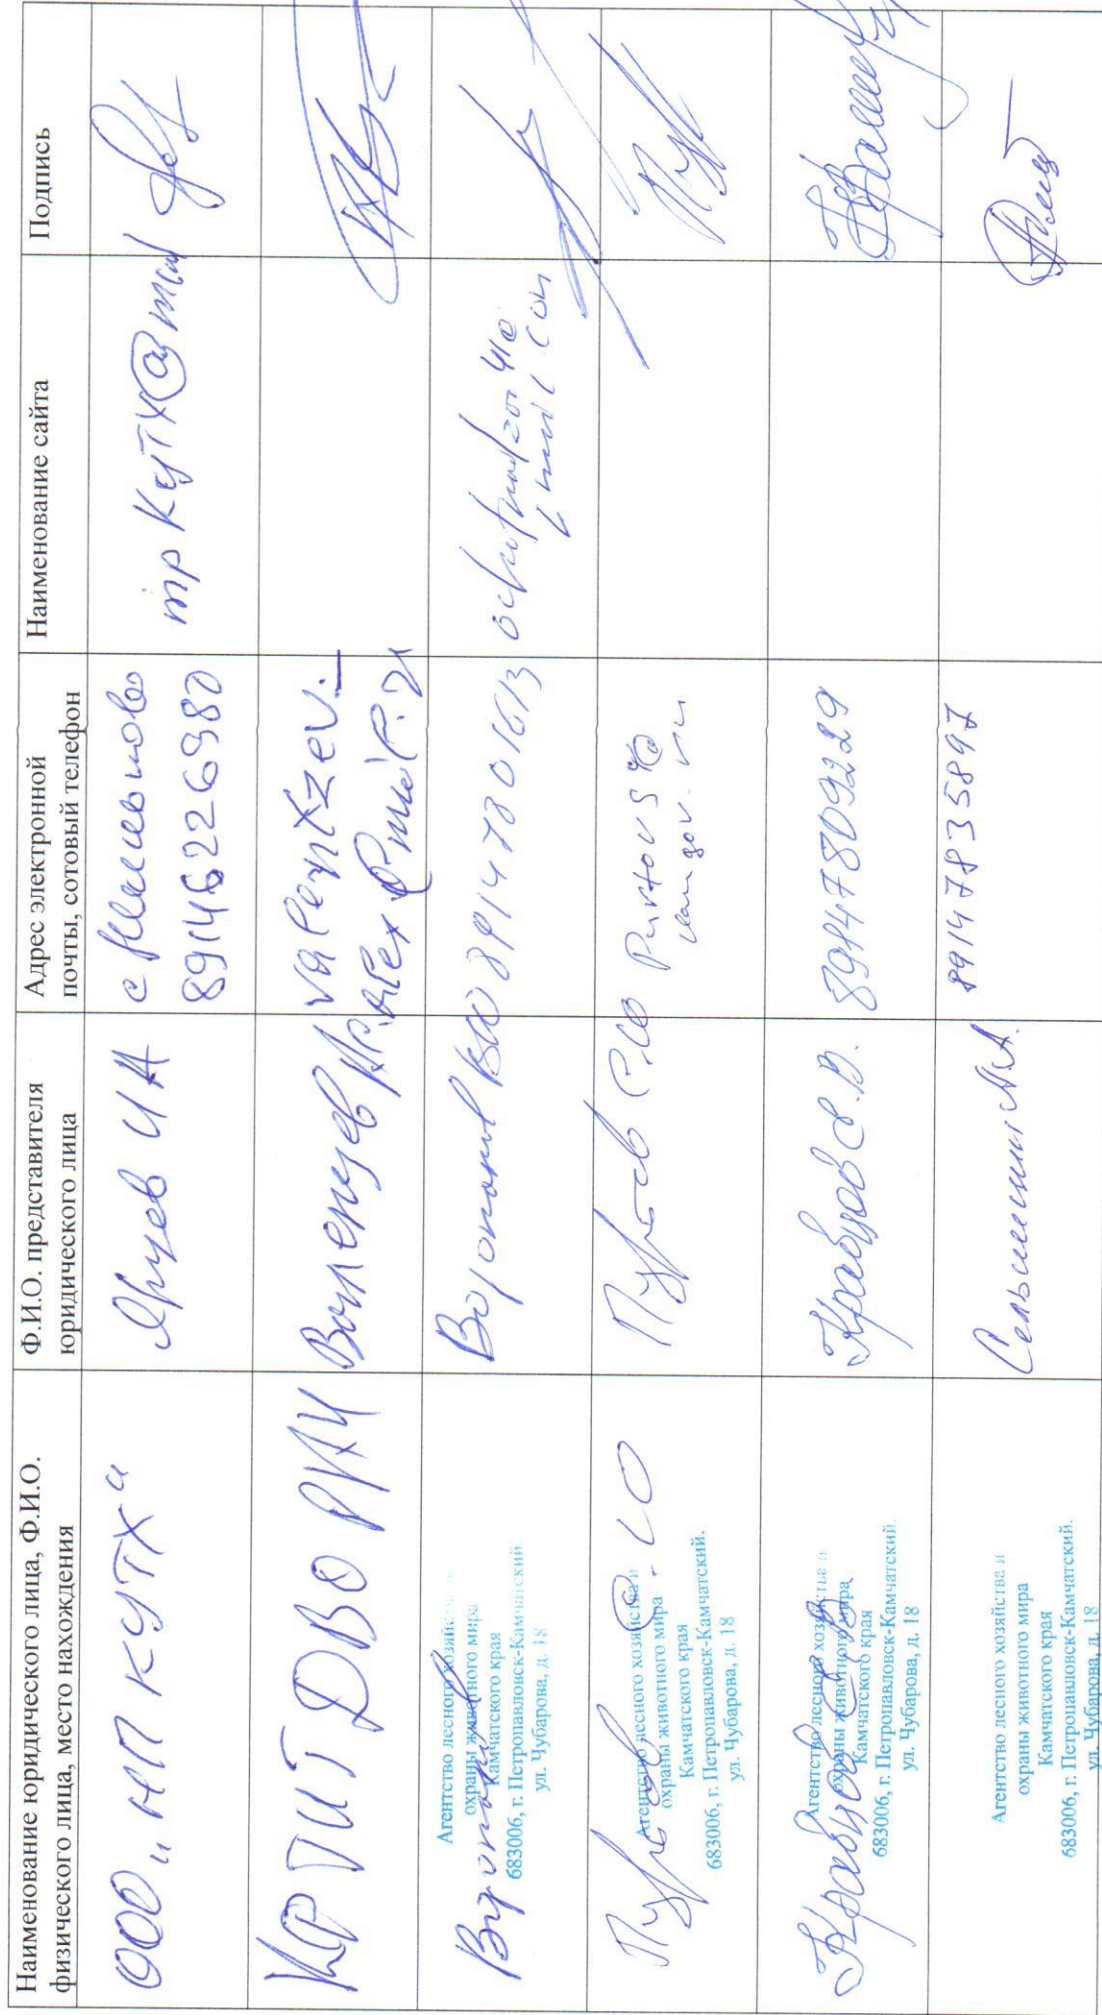 Наименование юридического лица, Ф.И.О.
физического лица, место нахождения
Ф.И.О. представителя
юридического лица
Адрес электронной
почты, сотовый телефон
Наименование сайта
Подпись
ООО „НП КУТХ“
Ярцев И А
с Мильково
89146226980
КФ ТИГ ДВО РАН
Валенцев
valentzev.
alex@mail.ru
Воронов
Агентство лесного хозяйства и
охраны животного мира
Камчатского края
683006, г. Петропавловск-Камчатский
ул. Чубарова, д. 18
89147801613
Пуртов С. Ю
Агентство лесного хозяйства и
охраны животного мира
Камчатского края
683006, г. Петропавловск-Камчатский.
ул. Чубарова, д. 18
Пуртов С.Ю
PurtovS@
kamgov.ru
Кравцов
Агентство лесного хозяйства и
охраны животного мира
Камчатского края
683006, г. Петропавловск-Камчатский.
ул. Чубарова, д. 18
Кравцов С.В.
89147809229
Агентство лесного хозяйства и
охраны животного мира
Камчатского края
683006, г. Петропавловск-Камчатский.
ул. Чубарова, д. 18
89147835897